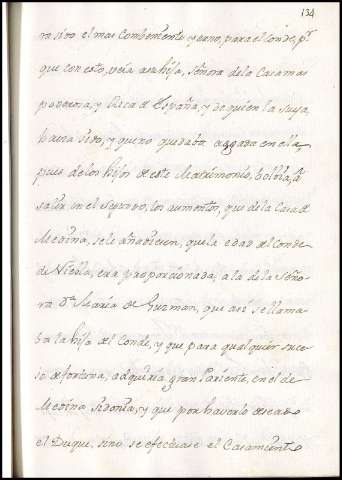 134
ra sino el mas Combeniente yerno, para el Conde, pr.
que con esto, veia a su hija, señora de la Casa mas
poderosa, y Rica de España, y de quien la suya,
havia sido, y que no quedaba agada en ella,
pues de los hijos de este Matrimonio, bolbía, á
salir en el segundo, los aumentos, que de la Casa de
Medina, se le añadiesen, que la edad del Conde
de Niebla, era proporcionada, a la de la Seño-
ra Da. María de Guzman, que así se llama-
ba la hija del Conde, y que para qualquier suce-
so de fortuna, adquiría gran Pariente, en el de
Medina Sidonia, y que por haverlo deseado
el Duque, sino se efectuase el Casamiento